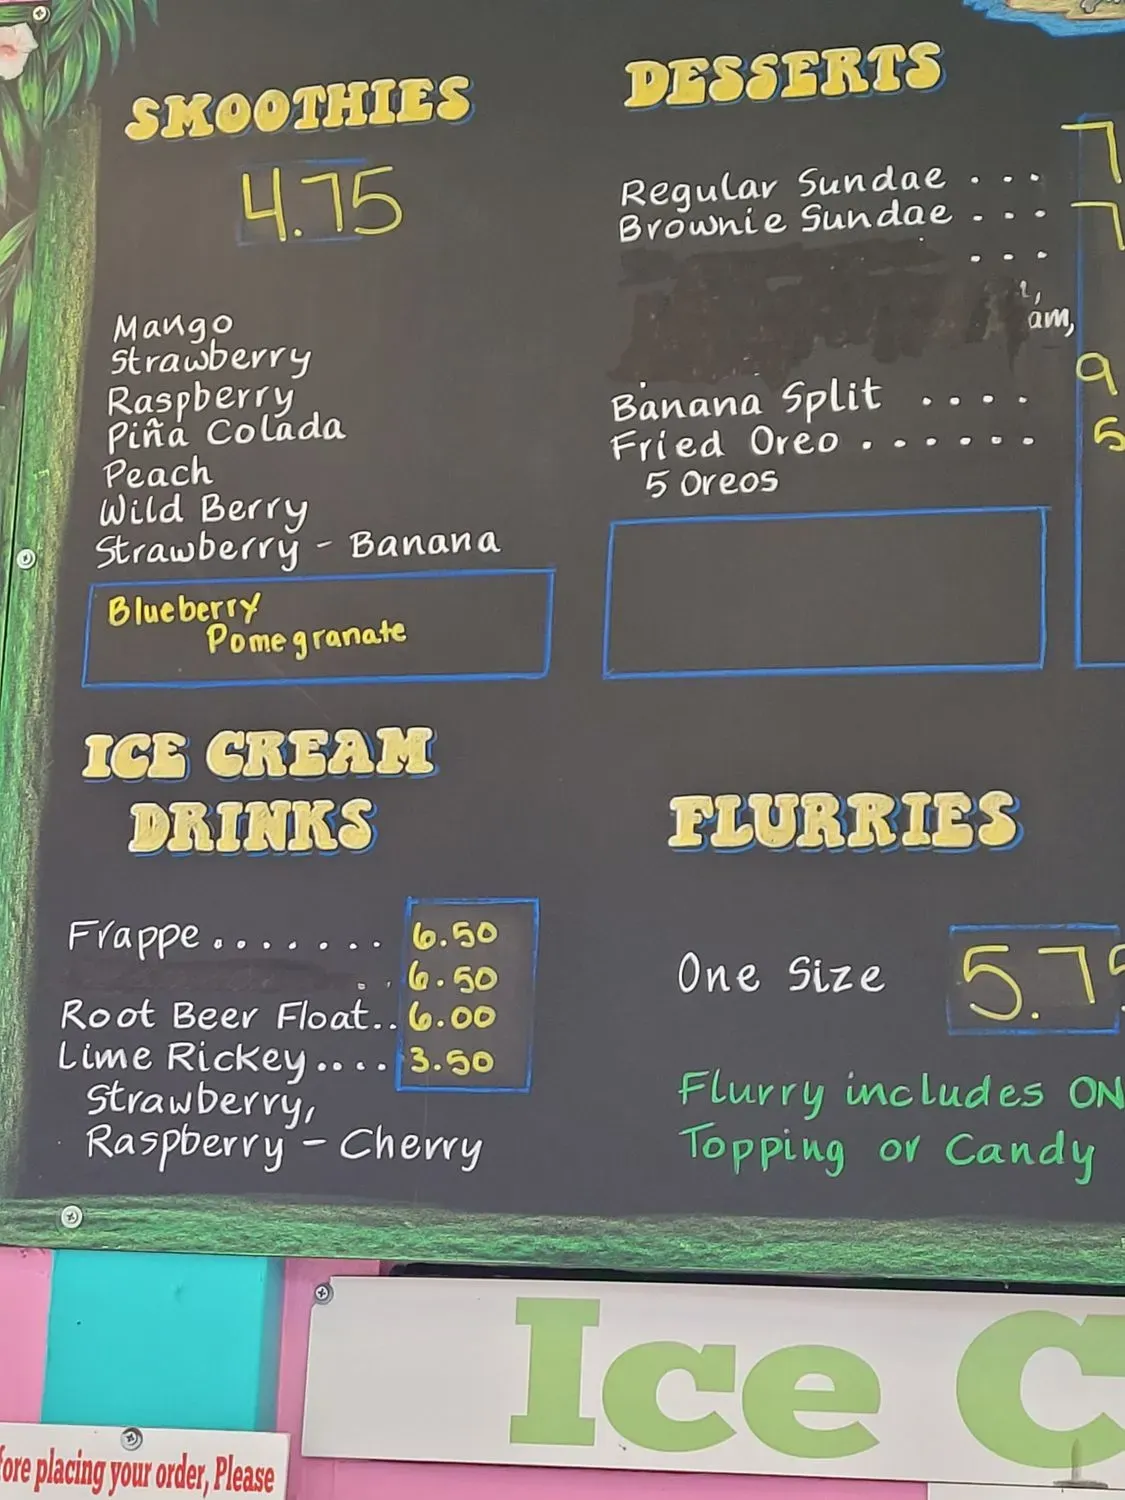 SMOOTHIES
4.75
Mango
Strawberry
Raspberry
Piña Colada
Peach
Wild Berry
Strawberry - Banana
Blueberry
Pomegranate
ICE CREAM
DRINKS
Frappe ....... 6.50
. . 6.50
Root Beer Float.. 6.00
Lime Rickey .... 3.50
Strawberry,
Raspberry - Cherry
DESSERTS
Regular Sundae ... 7
Brownie Sundae ... 7
...
am,
Banana Split .... 9
Fried Oreo ...... 5
5 Oreos
FLURRIES
One Size 5.75
Flurry includes ON
Topping or Candy
Ice C
fore placing your order, Please